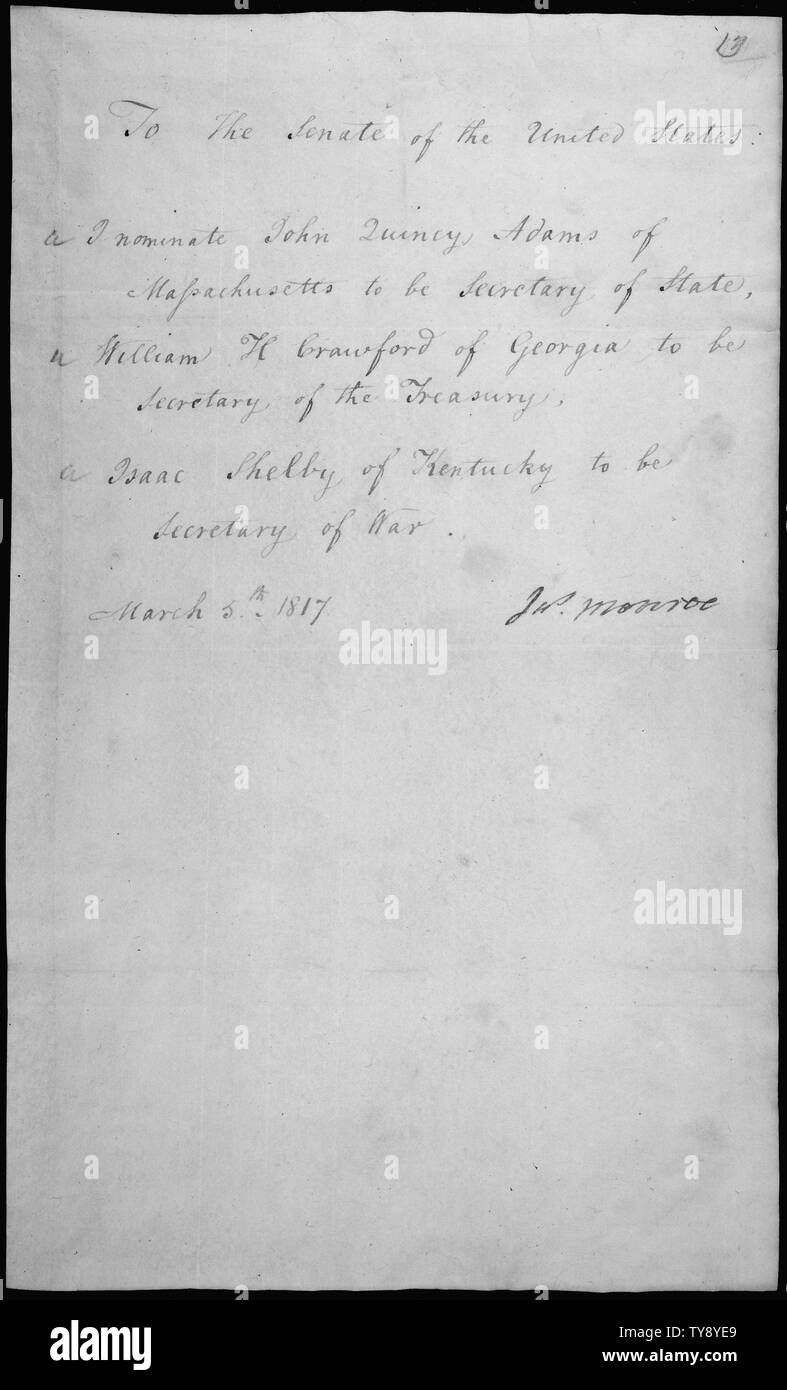 13
To the Senate of the United States:
a I nominate John Quincy Adams of
Massachusetts to be Secretary of State,
a William H Crawford of Georgia to be
Secretary of the Treasury,
a Isaac Shelby of Kentucky to be
Secretary of War.
March 5.th 1817 Jas. Monroe
alamy
alamy
alamy
a alamy stock photo
alamy
Image ID: TY8YE9
www.alamy.com